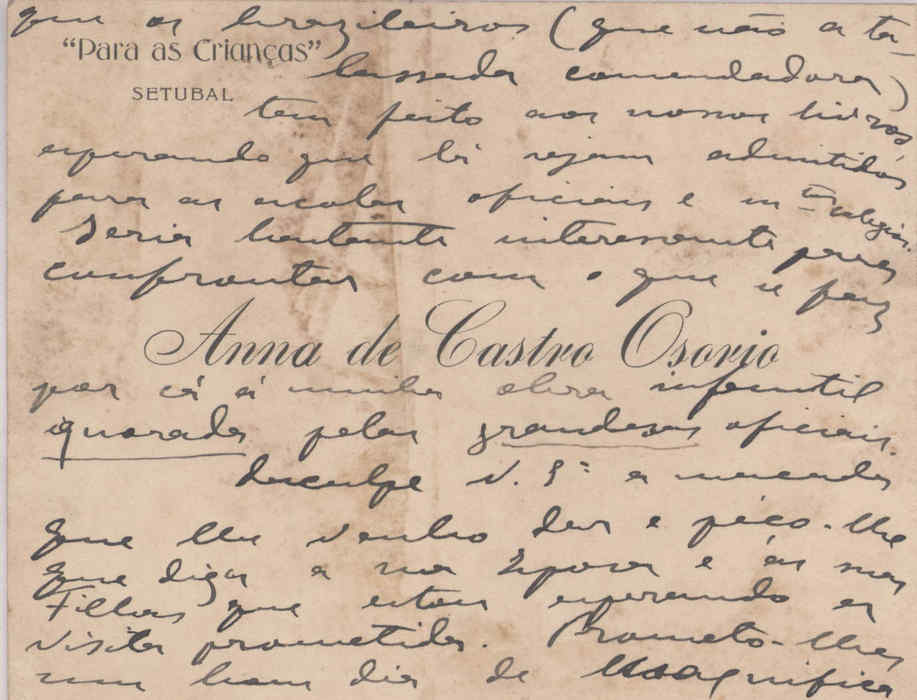 que os brazileiros (que não a ta-
"Para as Crianças"
lassada comendadora)
SETUBAL
tem feito aos nossos livros
esperando que lá sejam admitidos
para as escolas oficiais e em colegios.
Seria bastante interessante para
confrontar com o que se faz
Anna de Castro Osorio
por cá á minha obra infantil
ignorada pelas grandezas oficiais.
Desculpe V. a massada
que lhe venho dar e péco-lhe
que diga a sua Esposa e ás suas
Filhas que estou esperando a
visita prometida. Prometo-lhes
um bom dia de magnifica